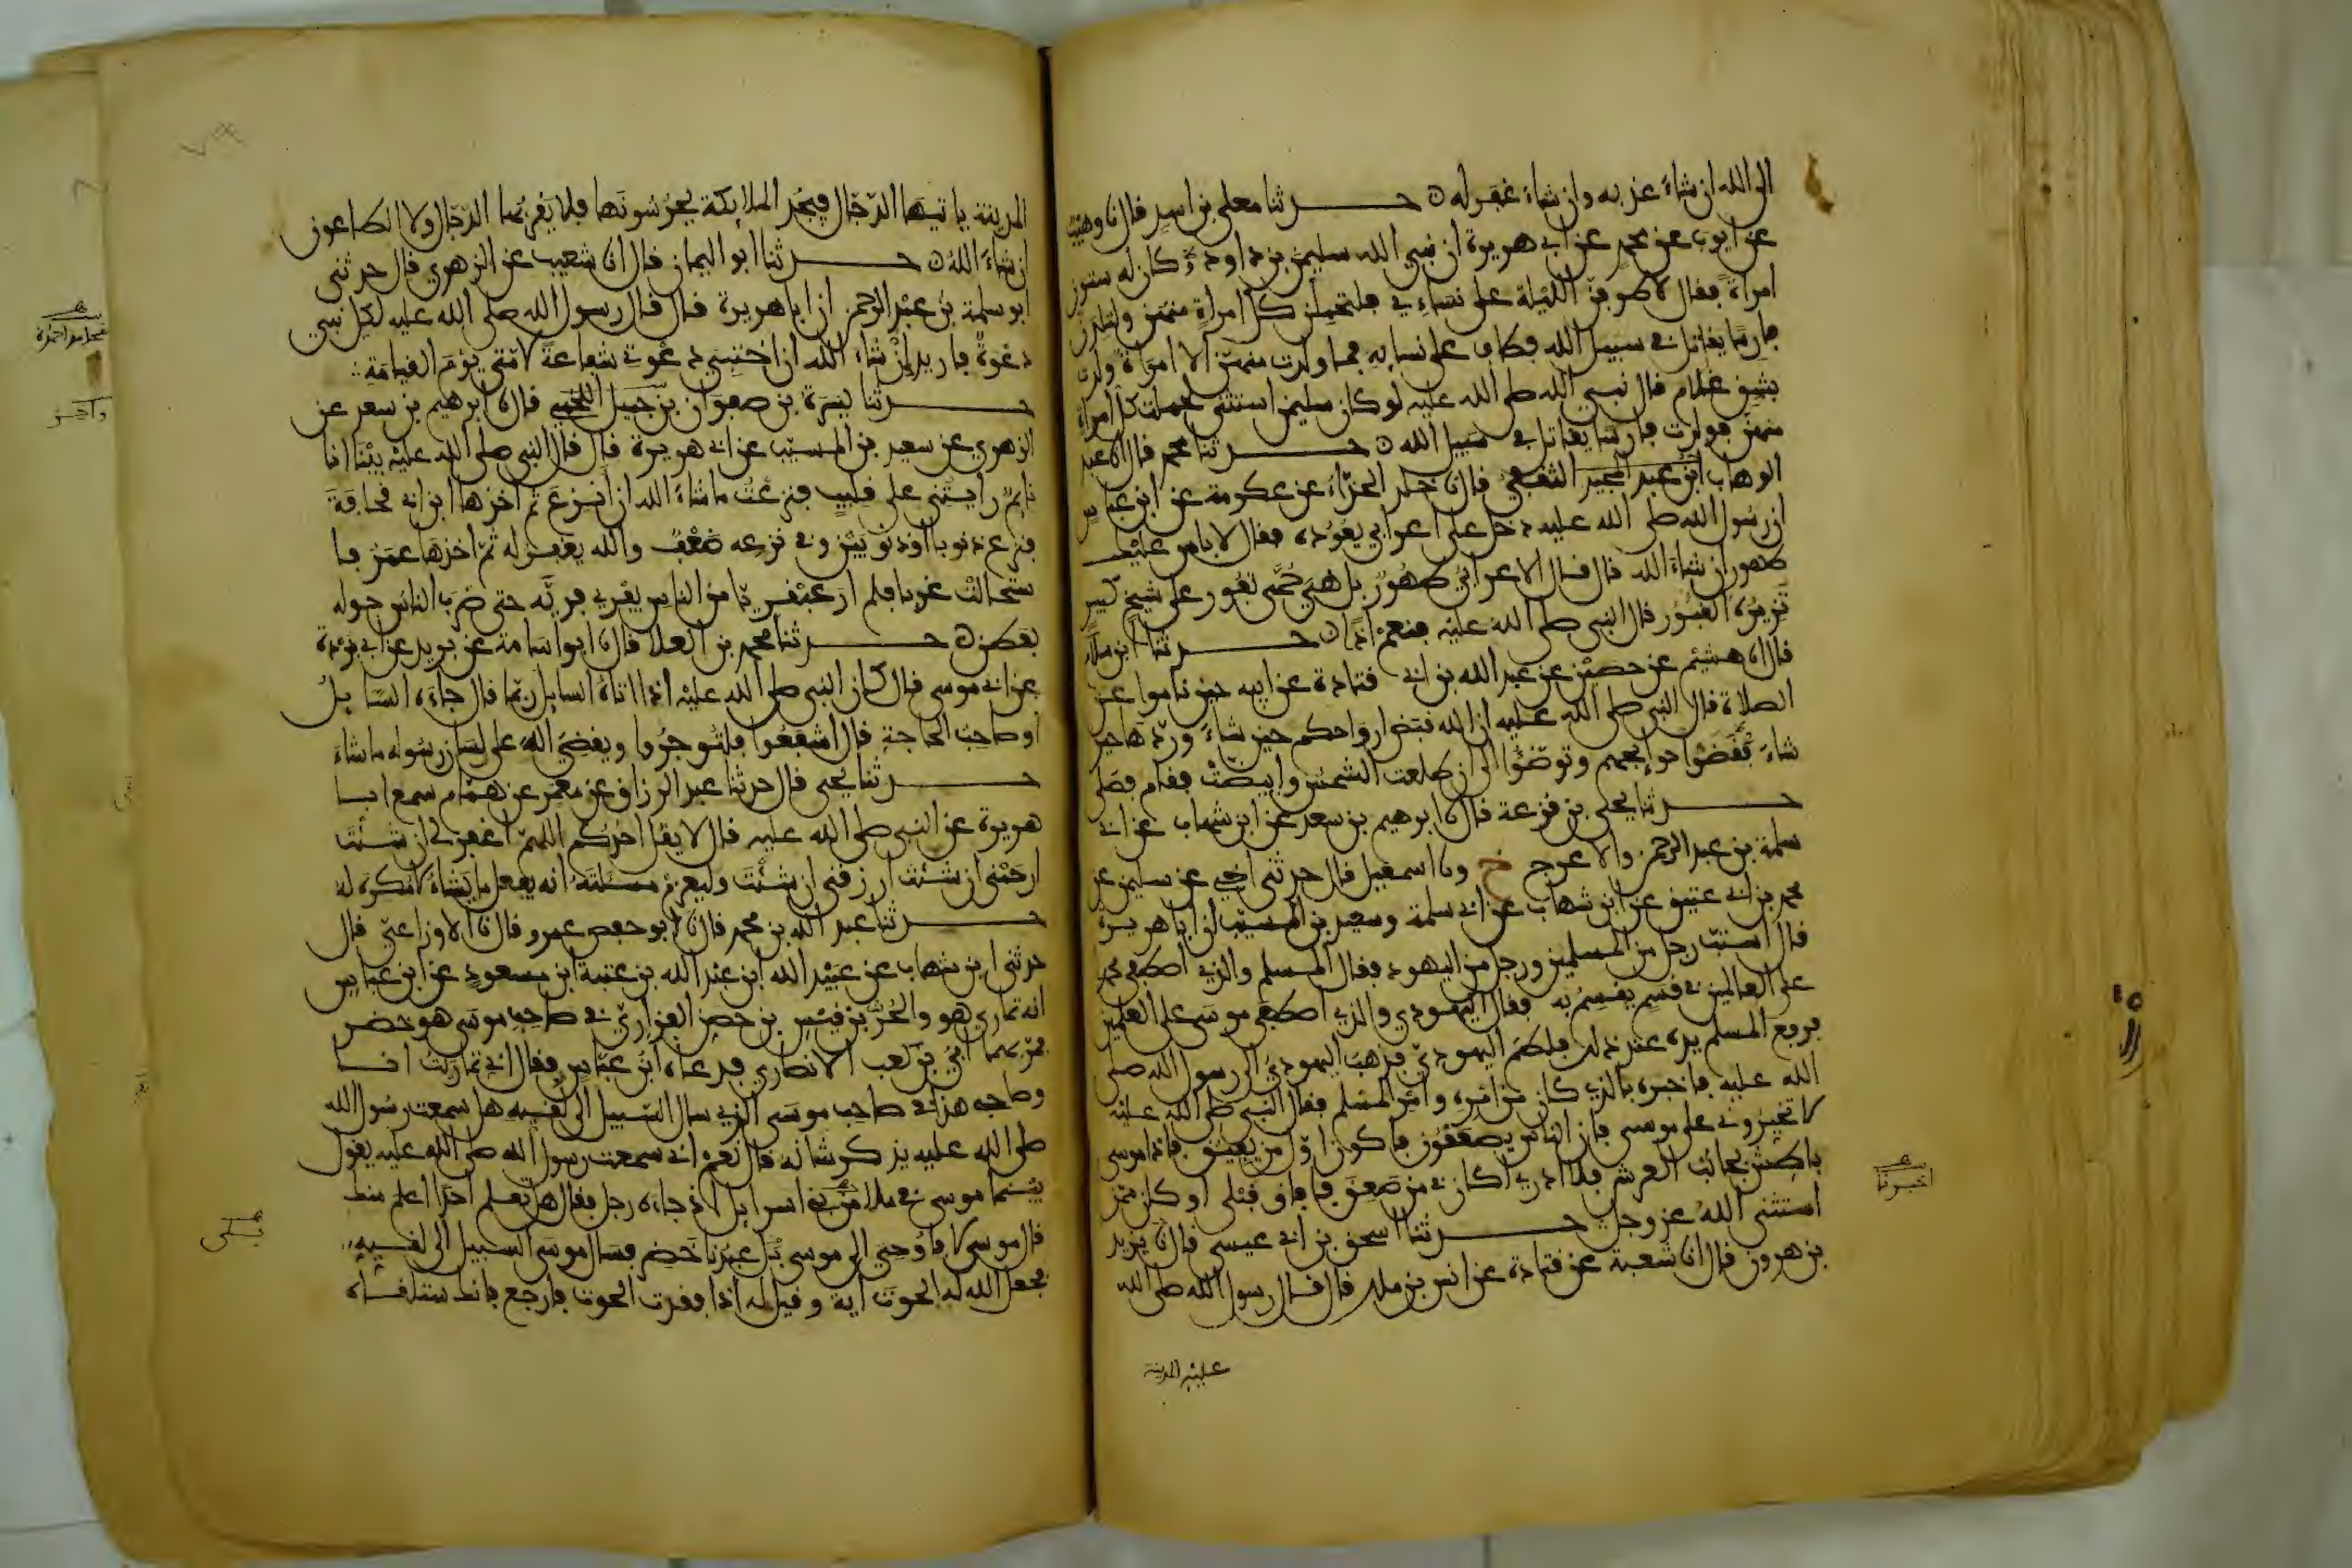 الى الله ان شاء عذبه وان شاء غفر له حدثنا معلى بن اسد قال نا وهيب
عن ايوب عن محمد عن ابي هريرة ان نبي الله سليمن بن داود كان له ستون
امراة فقال لاطوفن الليلة على نساءي فلتحملن كل امراة منهن ولتلدن
فارسا يقاتل في سبيل الله فطاف على نسايه فما ولدت منهن الا امراة ولدت
بشق غلام قال نبي الله صلى الله عليه لو كان سليمن استثنى لحملت كل امراة
منهن فولدت فارسا يقاتل في سبيل الله حدثنا محمد قال انا عبد
الوهاب ابن عبد المجيد الثقفي قال نا خلد الحذاء عن عكرمة عن ابن عباس
ان رسول الله صلى الله عليه دخل على اعرابي يعوده فقال لا باس عليك
طهور ان شاء الله قال قال الاعرابي طهور بل هي حمى تفور على شيخ كبير
تزيره القبور قال النبي صلى الله عليه فنعم اذا حدثنا ابن سلام
قال انا هشيم عن حصين عن عبد الله بن ابي قتادة عن ابيه حين ناموا عن
الصلاة قال النبي صلى الله عليه ان الله قبض ارواحكم حين شاء وردها حين
شاء فقضوا حوايجهم وتوضؤا الى ان طلعت الشمس وابيضت فقام فصلى
حدثنا يحيى بن قزعة قال نا ابرهيم بن سعد عن ابن شهاب عن ابي
سلمة بن عبد الرحمن والاعرج ح ونا اسمعيل قال حدثني اخي عن سليمن عن
محمد بن ابي عتيق عن ابن شهاب عن ابي سلمة وسعيد بن المسيب ان ابا هريرة
قال استب رجل من المسلمين ورجل من اليهود فقال المسلم والذي اصطفى محمدا
على العالمين في قسم يقسم به فقال اليهودي والذي اصطفى موسى على العلمين
فرفع المسلم يده عند ذلك فلطم اليهودي فذهب اليهودي الى رسول الله صلى
الله عليه فاخبره بالذي كان من امره وامر المسلم فقال النبي صلى الله عليه
لا تخيروني على موسى فان الناس يصعقون فاكون اول من يفيق فاذا موسى
باطش بجانب العرش فلا ادري اكان في من صعق فافاق قبلي او كان ممن
استثنى الله عز وجل حدثنا اسحق بن ابي عيسى قال نا يزيد
بن هرون قال انا شعبة عن قتادة عن انس بن ملك قال قال رسول الله صلى الله
عليه المدينة
اخبرنا
المدينة ياتيها الدجال فيجد الملايكة يحرسونها فلا يقربها الدجال ولا الطاعون
ان شاء الله حدثنا ابو اليمان قال انا شعيب عن الزهري قال حدثني
ابو سلمة بن عبد الرحمن ان ابا هريرة قال قال رسول الله صلى الله عليه لكل نبي
دعوة فاريد ان شاء الله ان اختبي دعوتي شفاعة لامتي يوم القيامة
حدثنا يسرة بن صفوان بن جميل اللخمي قال نا ابرهيم بن سعد عن
الزهري عن سعيد بن المسيب عن ابي هريرة قال قال النبي صلى الله عليه بينا انا
نايم رايتني على قليب فنزعت ما شاء الله ان انزع ثم اخذها ابن ابي قحافة
فنزع ذنوبا او ذنوبين وفي نزعه ضعف والله يغفر له ثم اخذها عمر فا
ستحالت غربا فلم ار عبقريا من الناس يفري فريه حتى ضرب الناس حوله
بعطن حدثنا محمد بن العلا قال نا ابو اسامة عن بريد عن ابي بردة
عن ابي موسى قال كان النبي صلى الله عليه اذا اتاه السايل ربما قال جاءه السايل
او صاحب الحاجة قال اشفعوا فلتوجروا ويقضي الله على لسان رسوله ما شاء
حدثنا يحيى قال حدثنا عبد الرزاق عن معمر عن همام سمع ابا
هريرة عن النبي صلى الله عليه قال لا يقل احدكم اللهم اغفر لي ان شئت
ارحمني ان شئت ارزقني ان شئت وليعزم مسئلته انه يفعل ما يشاء لا مكره له
حدثنا عبد الله بن محمد قال نا ابو حفص عمرو قال نا الاوزاعي قال
حدثني ابن شهاب عن عبيد الله ابن عبد الله بن عتبة ابن مسعود عن ابن عباس
انه تمارى هو والحر بن قيس بن حصن الفزاري في صاحب موسى هو خضر
فمر بهما ابي بن كعب الانصاري فدعاه ابن عباس فقال اني تماريت انا
وصاحبي هذا في صاحب موسى الذي سال السبيل الى لقيه هل سمعت رسول الله
صلى الله عليه يذكر شانه قال نعم اني سمعت رسول الله صلى الله عليه يقول
بينما موسى في ملا من بني اسرايل اذ جاءه رجل فقال هل تعلم احدا اعلم منك
قال موسى لا فاوحي الى موسى بلى عبدنا خضر فسال موسى السبيل الى لقيه
فجعل الله له الحوت اية وقيل له اذا فقدت الحوت فارجع فانك ستلقاه